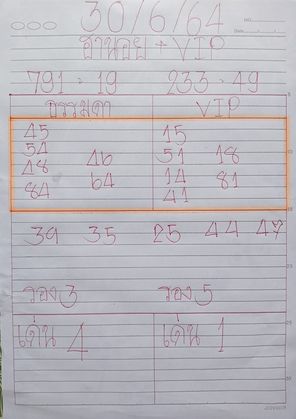 30/6/64
ฮานอย + VIP
791 - 19 233 - 49
ธรรมดา VIP
45 15
54 51 18
48 46 14 81
84 64 41
39 35 25 44 47
รอง 3 รอง 5
เด่น 4 เด่น 1